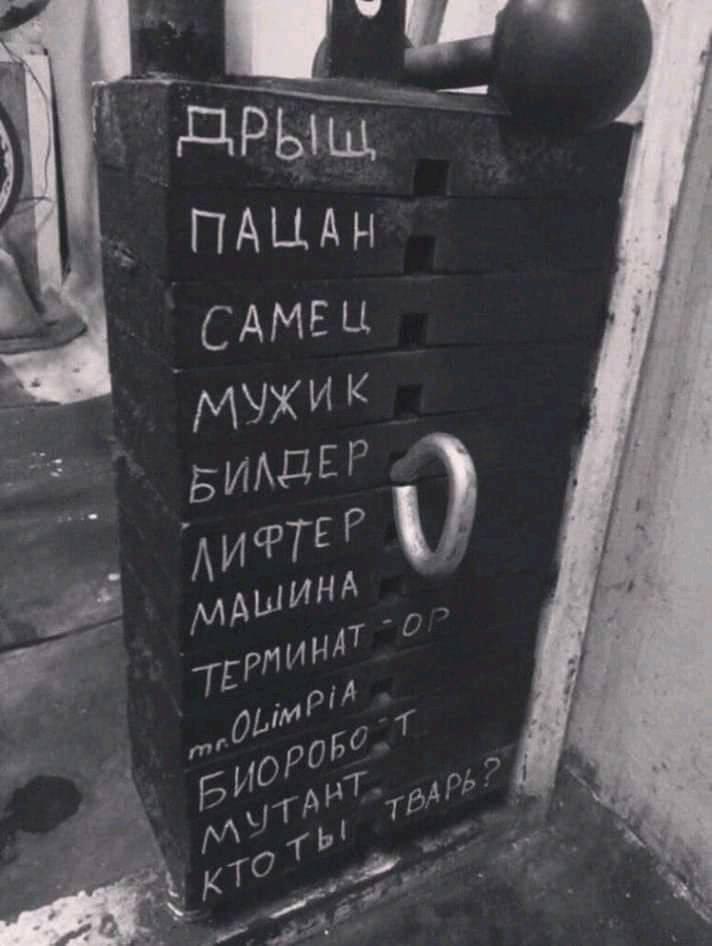 ДРЫЩ
ПАЦАН
САМЕЦ
МУЖИК
БИЛДЕР
ЛИФТЕР
МАШИНА
ТЕРМИНАТ-ОР
mr. OLimPiA
БИОРОБО-Т
МУТАНТ
КТО ТЫ ТВАРЬ?